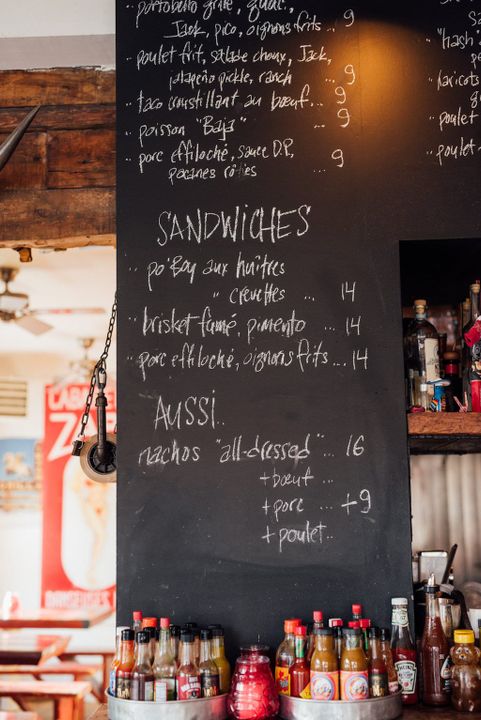 portobello grillé, guac.,
Jack, pico, oignons frits .. 9
poulet frit, salade choux, Jack,
jalapeño pickle, ranch .. 9
taco croustillant au bœuf... 9
poisson "Baja" ... 9
porc effiloché, sauce D.P.,
pacanes rôties ... 9
SANDWICHES
po'Boy aux huîtres
" crevettes ... 14
brisket fumé, pimento ... 14
porc effiloché, oignons frits... 14
AUSSI..
nachos "all-dressed".. 16
+ bœuf ...
+ porc ... +9
+ poulet..
"hash
haricots
poulet
poulet
LABA
DANSEUSES
HEINZ